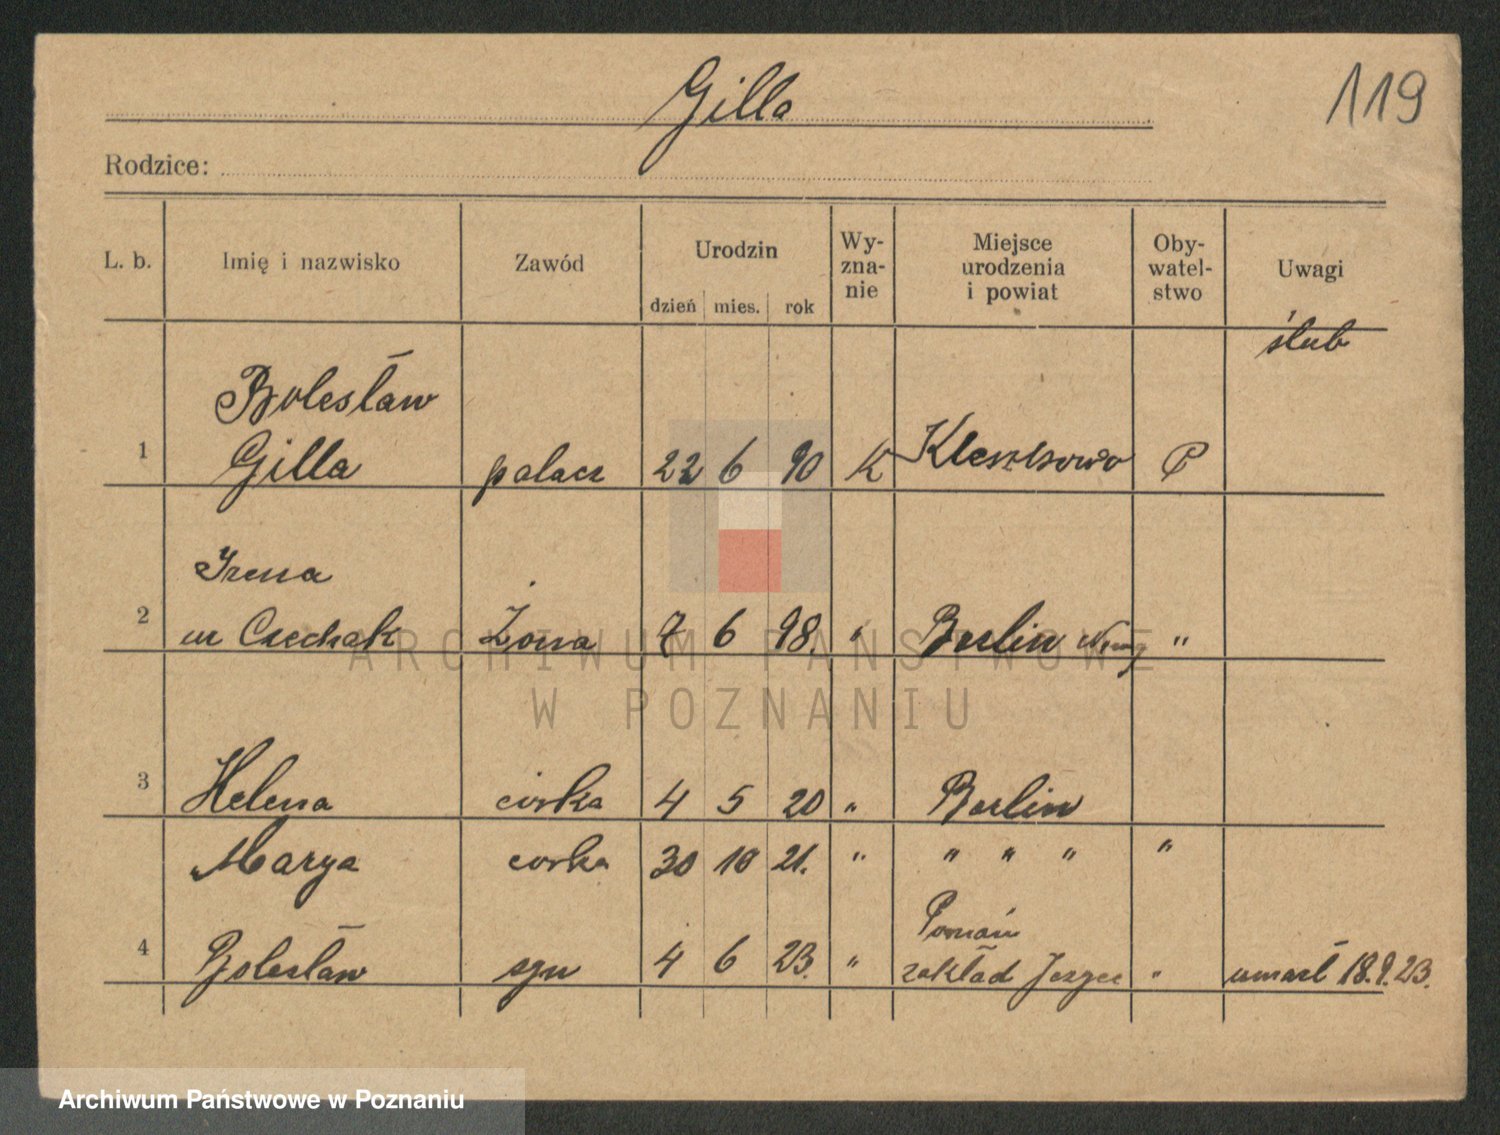 Gilla
119
Rodzice:
L. b. Imię i nazwisko Zawód Urodzin dzień mies. rok Wy-zna-nie Miejsce urodzenia i powiat Oby-watel-stwo Uwagi
ślub
Bolesław
1 Gilla palacz 22 6 90 K P
Irena
2 ur Czechak Żona 7 6 98. " Berlin "
3 Helena córka 4 5 20 " Berlin
Marya corka 30 10 21. " " " " "
Poznań
4 Bolesław syn 4 6 23. " zakład " umarł 18.9.23.
ARCHIWUM PAŃSTWOWE
W POZNANIU
Archiwum Państwowe w Poznaniu